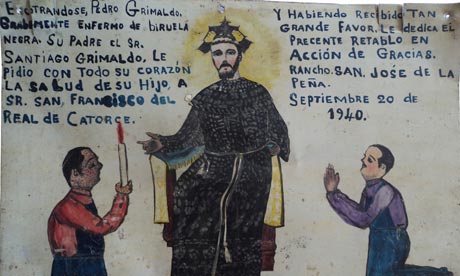 Encotrandose, Pedro Grimaldo.
Grabimente enfermo de biruela
negra. Su Padre el Sr.
Santiago Grimaldo, le
Pidio con todo su corazón
la salud de su Hijo, a
Sr. San, Francisco del
Real de Catorce.
Y Habiendo Recibido Tan
Grande Favor. Le dedica el
Precente Retablo en
Acción de Gracias.
Rancho. San, Jose de la
Peña.
Septiembre 20 de
1940.